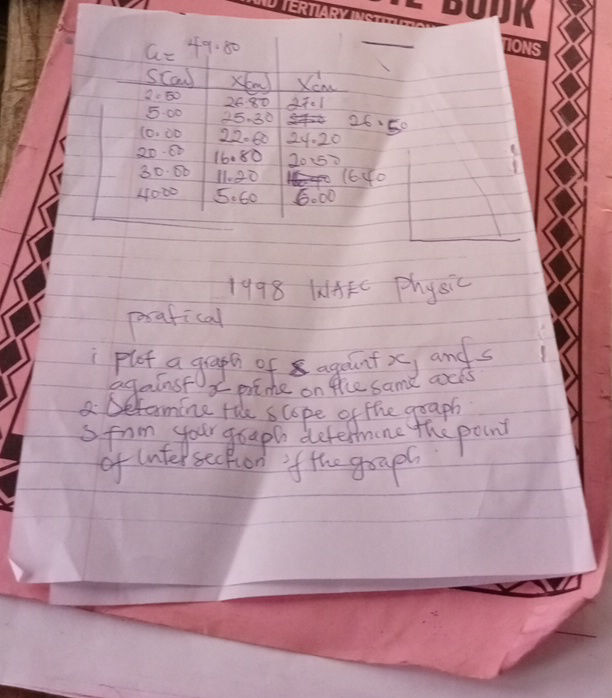 BOOK
AND TERTIARY INSTITUTIONS
a = 49.80
S(cm) X(cm) X'cm
2.50 26.80 27.1
5.00 25.30 26.50
10.00 22.60 24.20
20.00 16.80 20.50
30.00 11.20 16.40
40.00 5.60 6.00
1998 WAEC Physic
pratical
i Plot a graph of s againt x, and s
against x prime on the same axis
2. Determine the slope of the graph
3 from your graph determine the point
of intersection of the graph.